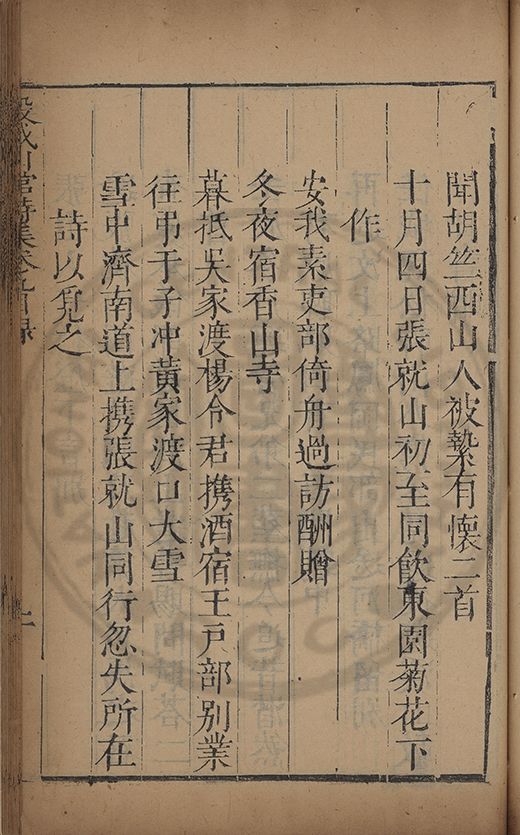 聞胡竺西山人被縶有懷二首
十月四日張就山初至同飲東園菊花下
作
安我素吏部倚舟過訪酬贈
冬夜宿香山寺
暮抵吳家渡楊令君携酒宿王戶部別業
往弔于子冲黃家渡口大雪
雪中濟南道上携張就山同行忽失所在
詩以覓之